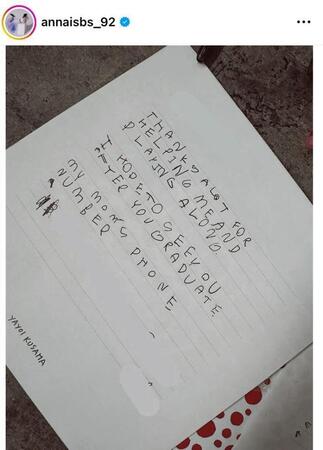 annaisbs_92
THANKS ALOT FOR
HELPING ME AND
PLAYING ALONG
I HOPE TO SEE YOU
AFTER YOU GRADUATE.
MY MOMS PHONE
NUMBER
YAYOI KUSAMA